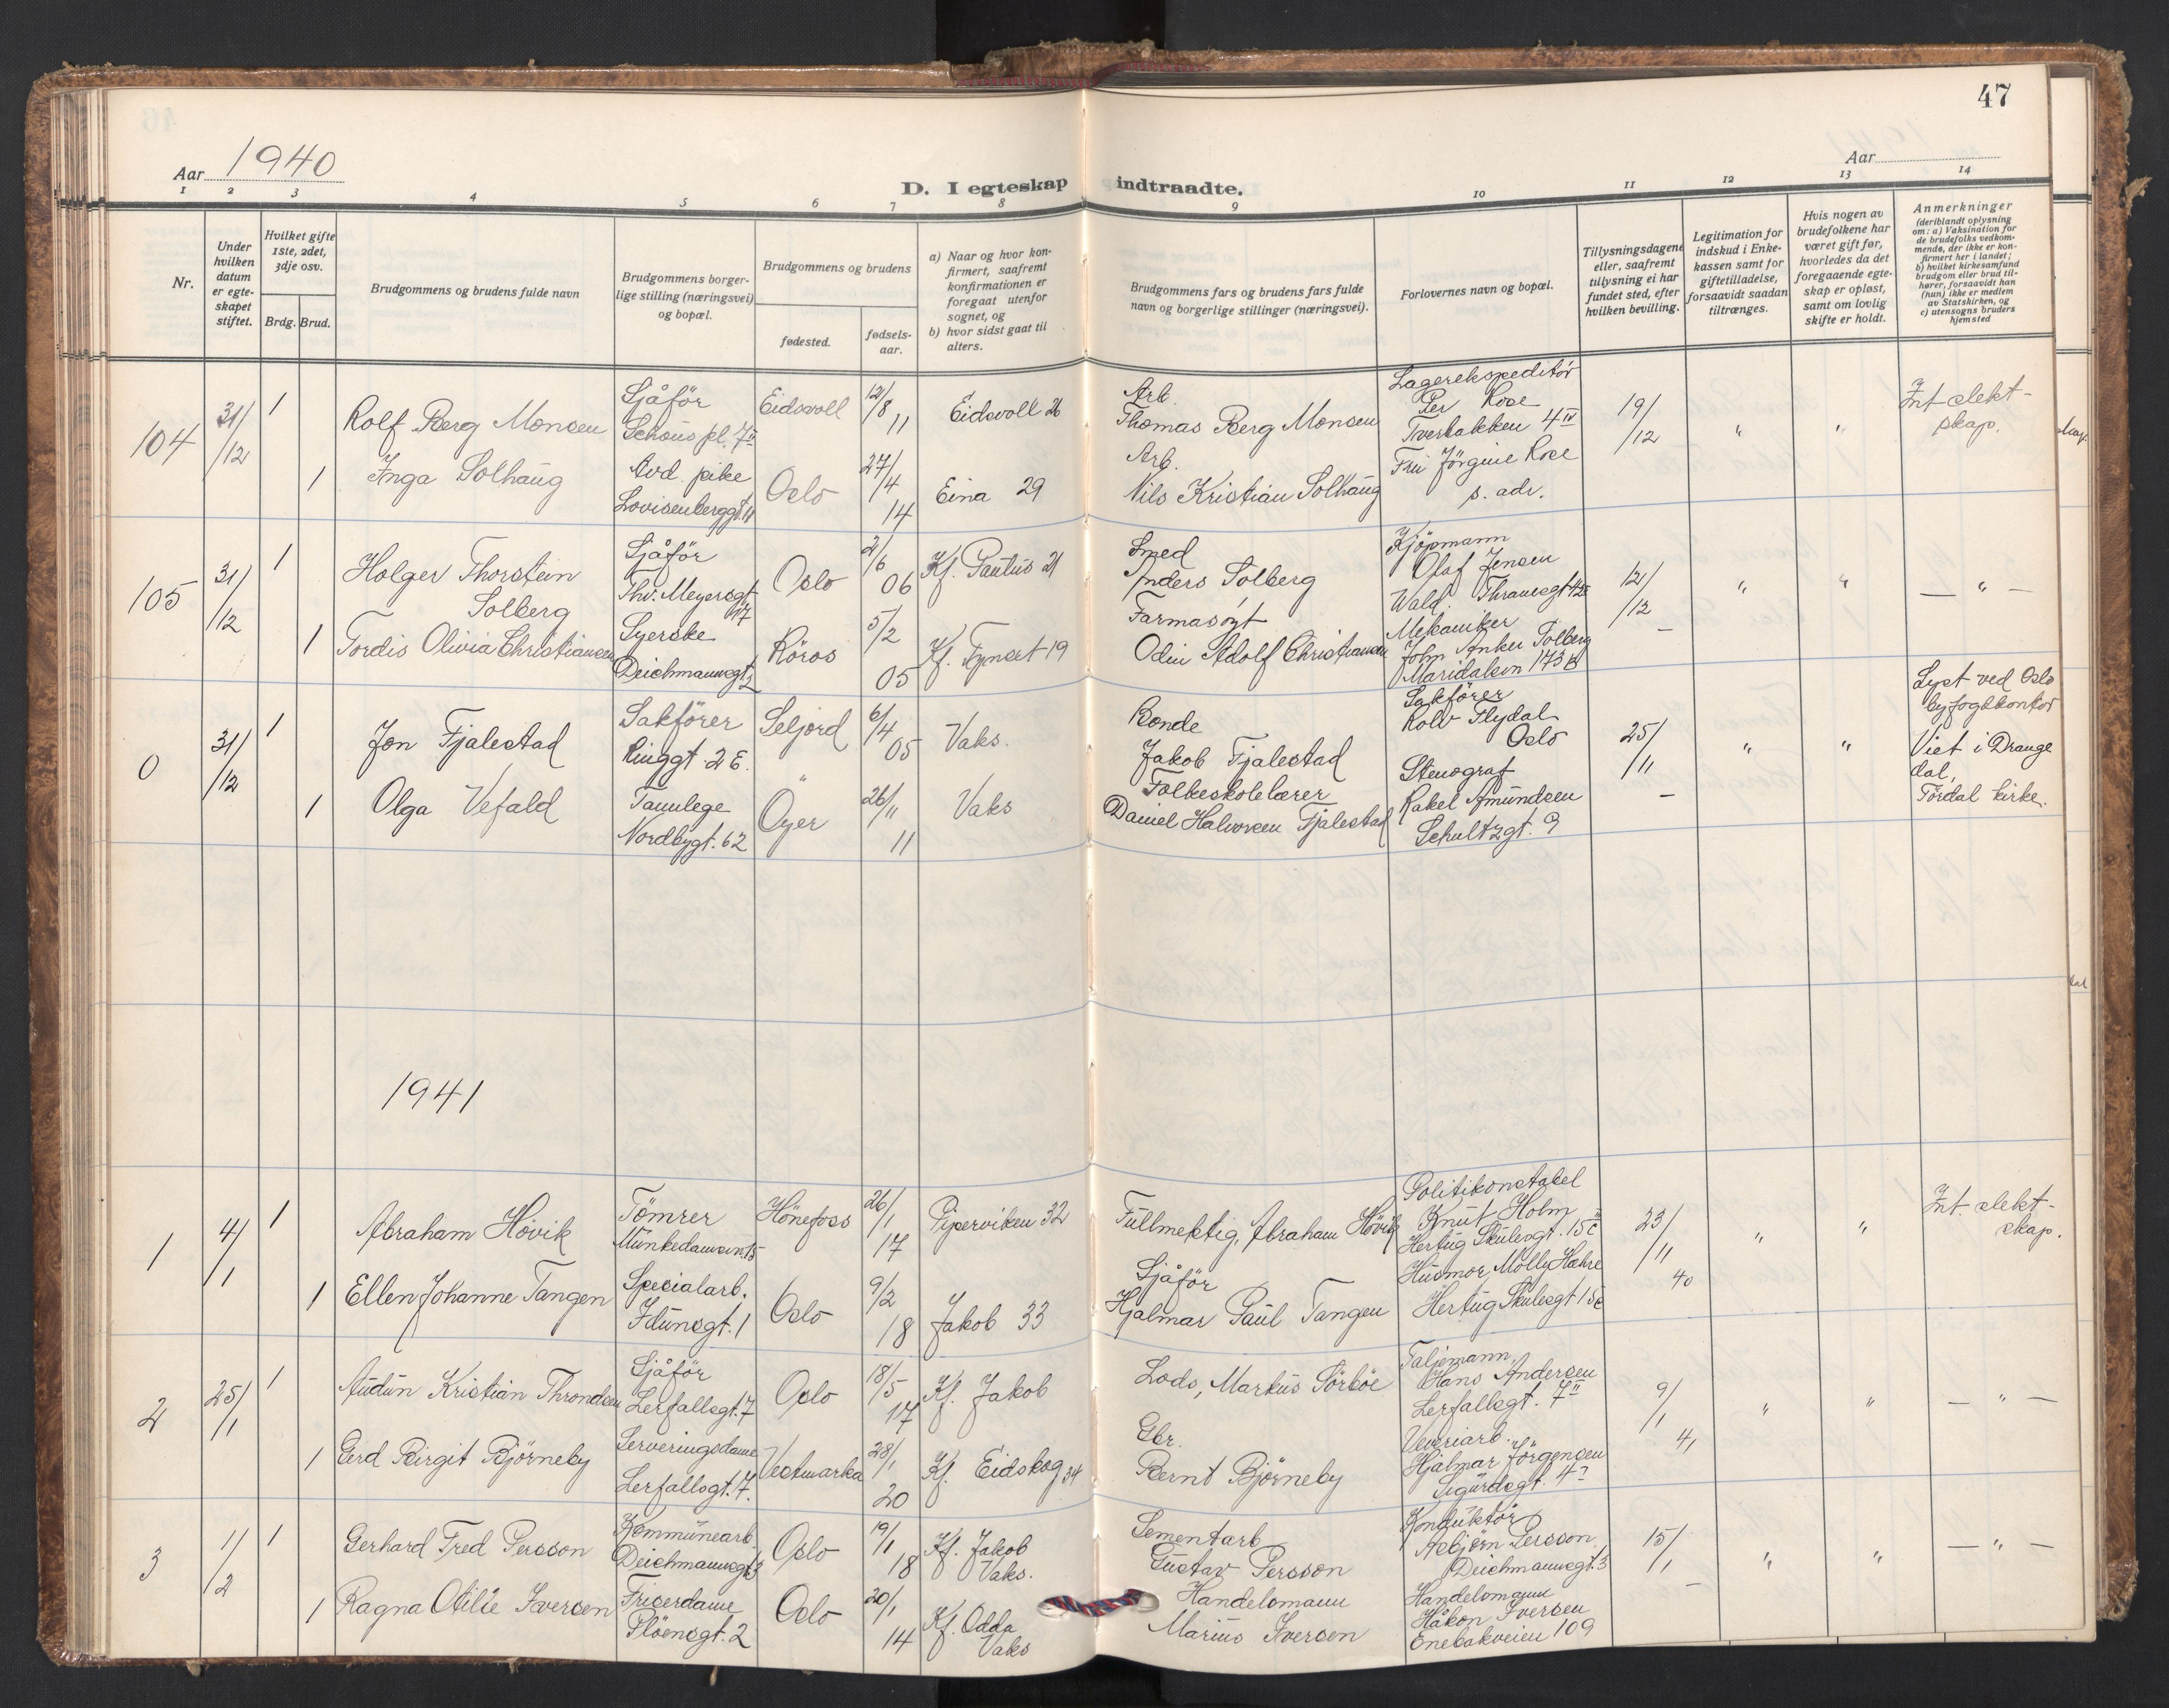 47
Aar 1940
Aar
D. I egteskap indtraadte.
1 2 3 4 5 6 7 8 9 10 11 12 13 14
Nr.
Under hvilken datum er egteskapet stiftet.
Hvilket gifte 1ste, 2det, 3dje osv.
Brdg. Brud.
Brudgommens og brudens fulde navn
Brudgommens borgerlige stilling (næringsvei) og bopæl.
Brudgommens og brudens
fødested.
fødselsaar.
a) Naar og hvor konfirmert, saafremt konfirmationen er foregaat utenfor sognet, og
b) hvor sidst gaat til alters.
Brudgommens fars og brudens fars fulde navn og borgerlige stillinger (næringsvei).
Forlovernes navn og bopæl.
Tillysningsdagene eller, saafremt tillysning ei har fundet sted, efter hvilken bevilling.
Legitimation for indskud i Enkekassen samt for giftetilladelse, forsaavidt saadan tiltrænges.
Hvis nogen av brudefolkene har været gift før, hvorledes da det foregaaende egteskap er opløst, samt om lovlig skifte er holdt.
Anmerkninger
(deriblandt oplysning om: a) Vaksination for de brudefolks vedkommende, der ikke er konfirmert her i landet; b) hvilket kirkesamfund brudgom eller brud tilhører, forsaavidt han (hun) ikke er medlem av Statskirken, og c) utensogns bruders hjemsted
104 31/12 1
Rolf Berg Monsen
Sjåför
Schous pl. 7 II
Eidsvoll
12/8 11
Eidsvoll 26
Arb.
Thomas Berg Monsen
Lagerekspeditör
Per Rose
Tverbakken 4 IV
19/12 " "
Int slektskap.
1
Inga Solhaug
Avd. pike
Lovisenberggt.
Oslo
27/4 14
Eina 29
Arb.
Nils Kristian Solhaug
Fru Jörgine Rose
s. adr.
105 31/12 1
Holger Thorstein
Solberg
Sjåför
Thv. Meyersgt
17
Oslo
2/6 06
Kf. Paulus 21
Smed
Anders Solberg
Kjöpmann
Olaf Jensen
Wald. Thranesgt
12/12 " "
— " —
1
Tordis Olivia Christiansen
Syerske
Deichmannsgt 2
Röros
5/2 05
Kf. Tynset 19
Farmasöyt
Odin Adolf Christiansen
Mekaniker
John Anker Solberg
Maridalsvn 173 B
0 31/12 1
Jon Fjalestad
Sakförer
Ringgt. 2 E.
Seljord
6/4 05
Vaks.
Bonde
Jakob Fjalestad
Sakförer
Rolv Flydal
Oslo
25/11 " "
Lyst ved Oslo
byfogdkontor
Viet i Drange
dal,
Tördal kirke.
1
Olga Vefald
Tannlege
Nordbygt. 62
Öyer
26/11 11
Vaks
Folkeskolelærer
Daniel Halvorsen Fjalestad
Stenograf
Rakel Amundsen
Schultzgt. 9
1941
1 4/1 1
Abraham Hövik
Tömrer
Munkedamsvn 15
Hönefoss
26/1 17
Piperviken 32
Fullmektig, Abraham Hövik
Politikonstabel
Knut Holm
Hertug Skulesgt. 15 c
23/11 40 " "
Int. slektskap.
1
Ellen Johanne Tangen
Specialarb.
Idunsgt. 1
Oslo
9/2 18
Jakob 33
Sjåför
Hjalmar Paul Tangen
Husmor Molly Hahre
Hertug Skulesgt 15c
2 25/1 1
Audun Kristian Throndsen
Sjåför
Lerfallsgt. 7
Oslo
18/5 17
Kf. Jakob
Lods, Markus Sörböe
Taljemann
Hans Andersen
Lerfallsgt. 7 II
9/1 41 " "
— " —
1
Gerd Birgit Björneby
Serveringsdame
Lerfallsgt. 7.
Vestmarka
28/1 20
Kf. Eidskog 34
Gbr.
Bernt Björneby
Veveriarb.
Hjalmar Jörgensen
Sigurdsgt.
3 1/2 1
Gerhard Fred Persson
Kommunearb
Deichmannsgt 3
Oslo
19/1 18
Kf. Jakob
Vaks.
Sementarb
Gustav Persson
Konduktör
Asbjörn Persson
Deichmannsgt. 3
15/1 " "
— " —
1
Ragna Otilie Iversen
Friserdame
Plöensgt. 2
Oslo
20/1 14
Kf. Odda
Vaks
Handelsmann
Marius Iversen
Handelsmann
Håkon Iversen
Enebakveien 109